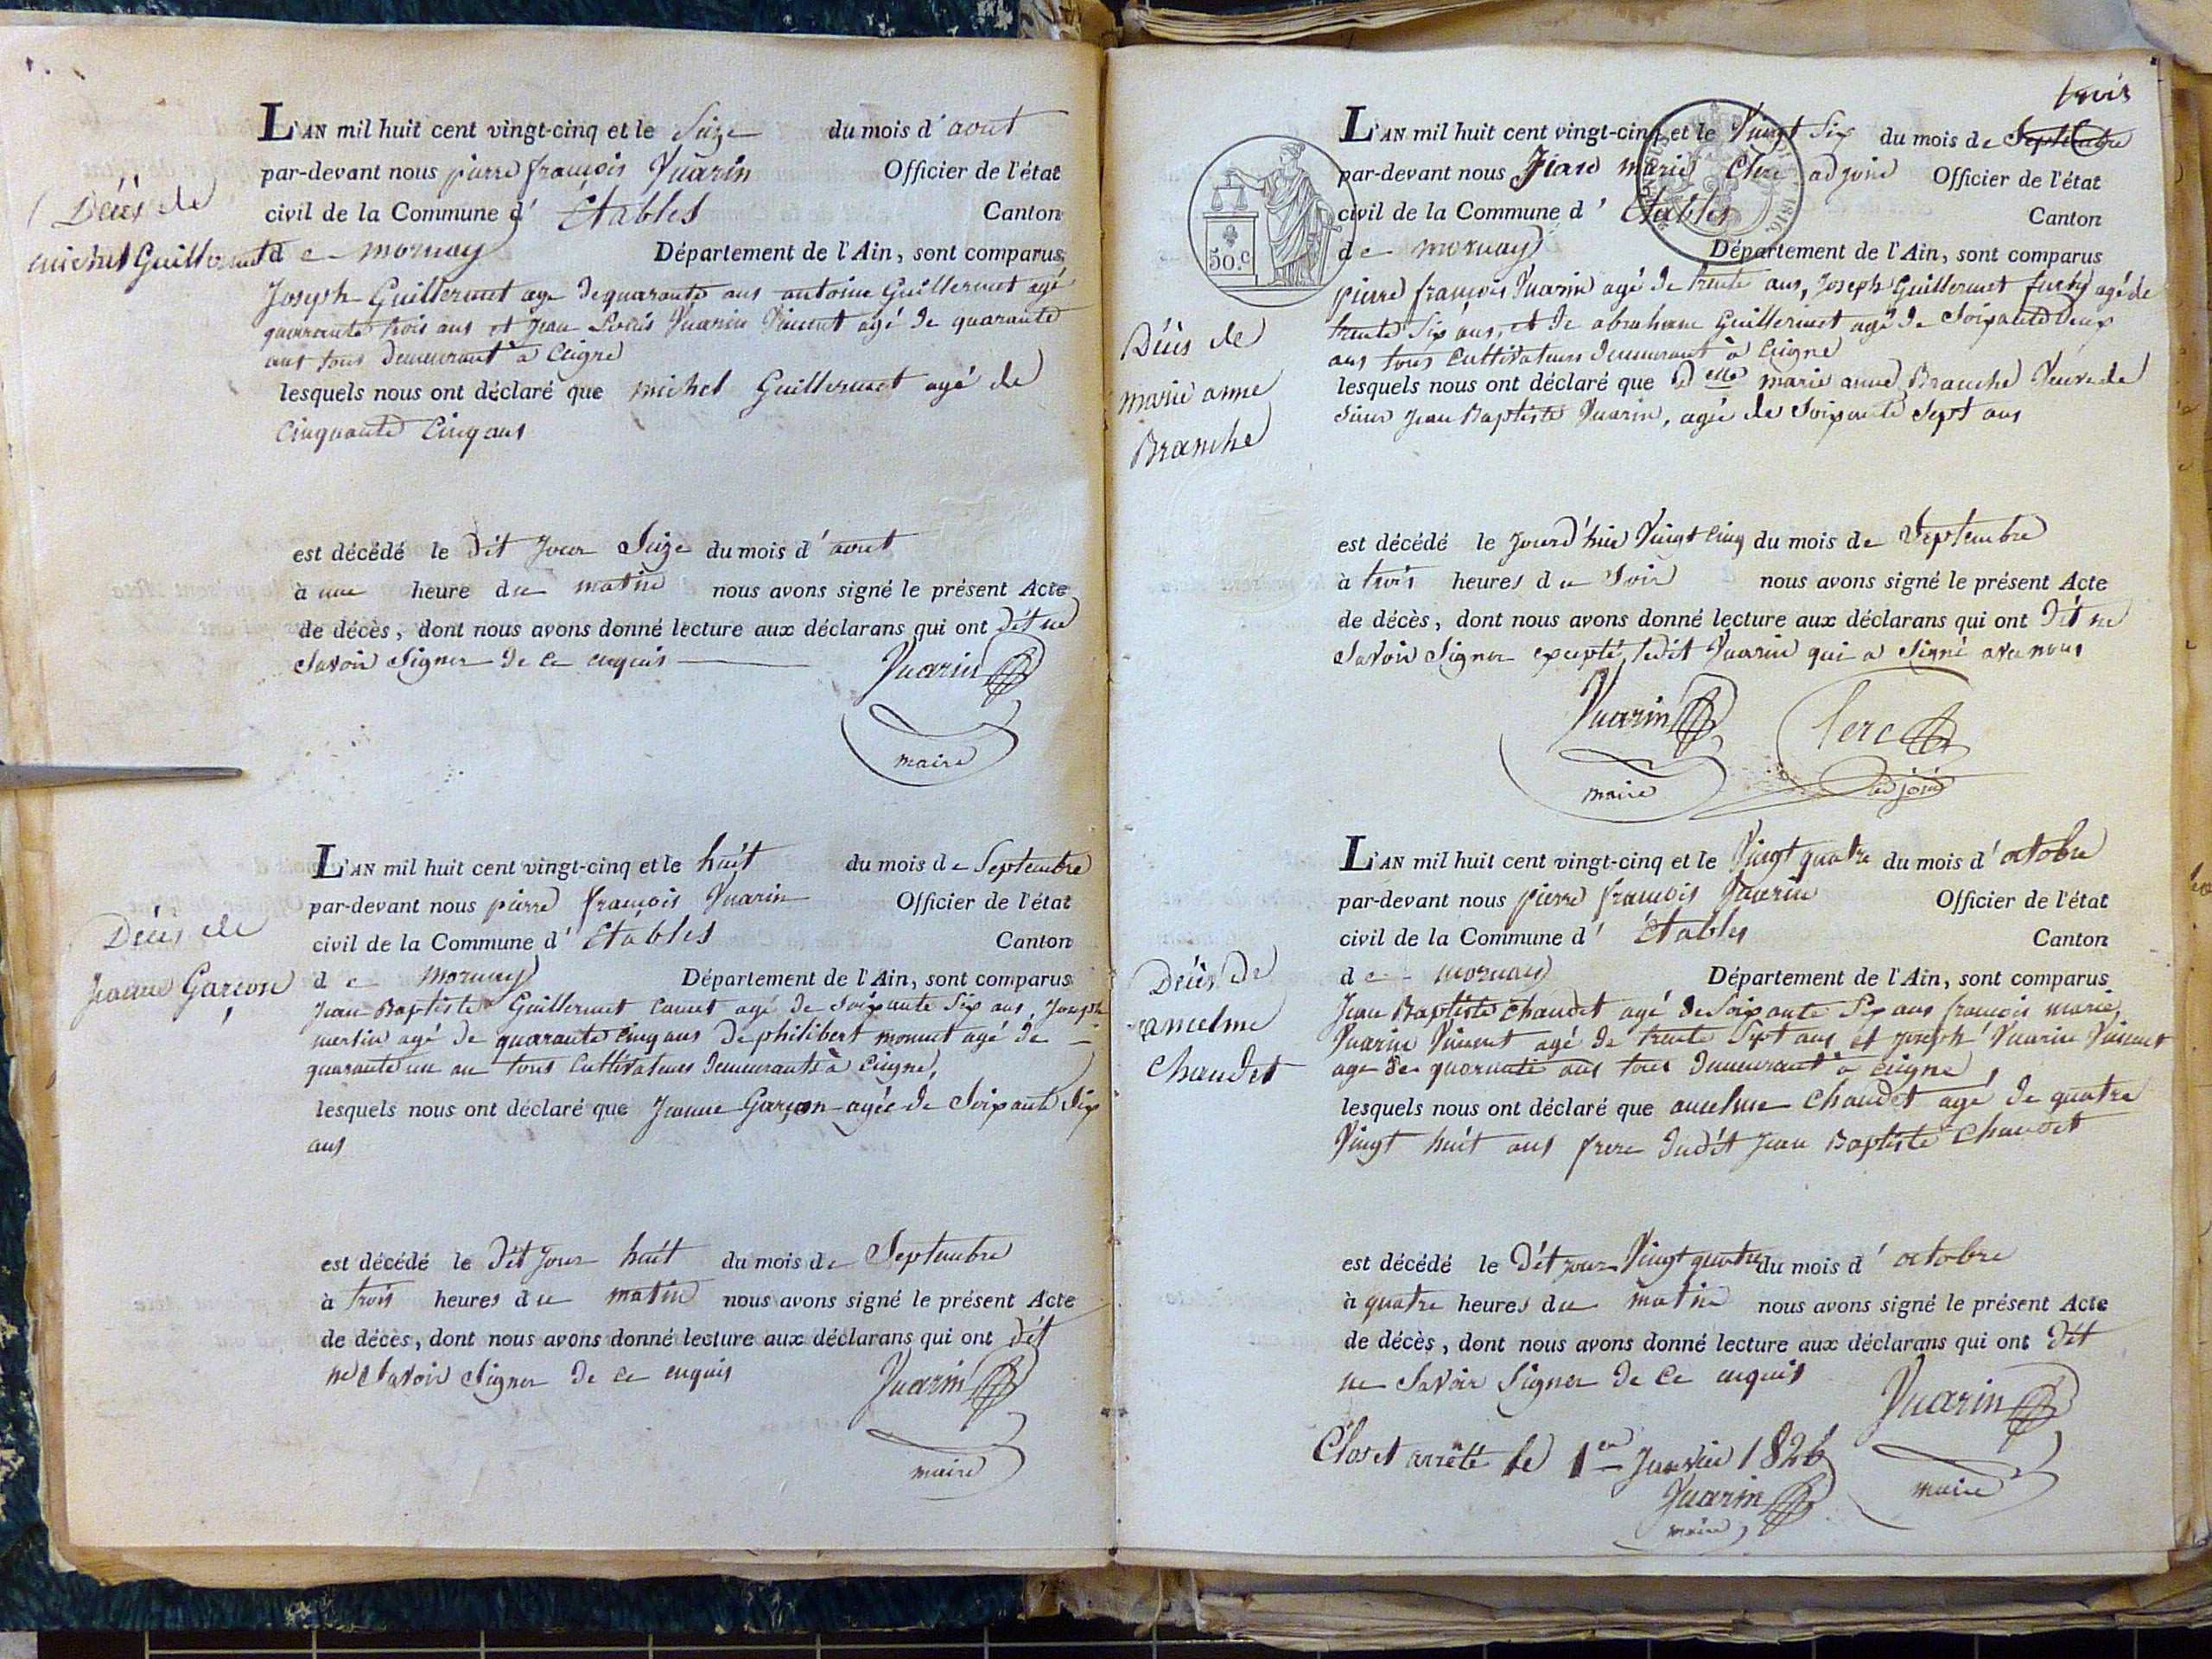 L'AN mil huit cent vingt-cinq et le Seize du mois d'aout
par-devant nous pierre françois Vuarin Officier de l'état
civil de la Commune d' Etables Canton
de mornay Département de l'Ain, sont comparus
Décès de
michel Guillermet
Joseph Guillermet age de quarante ans antoine Guillermet agé
quarante trois ans et Jean Louis Vuarin Vincent agé de quarante
ans tous demeurant à Ceigne
lesquels nous ont déclaré que michel Guillermet agé de
Cinquante Cinq ans
est décédé le dit Jour Seize du mois d'aout
à une heure du matin nous avons signé le présent Acte
de décès, dont nous avons donné lecture aux déclarans qui ont dit ne
Savoir Signer de ce enquis
Vuarin
maire
L'AN mil huit cent vingt-cinq et le huit du mois de Septembre
par-devant nous pierre françois Vuarin Officier de l'état
civil de la Commune d' Etables Canton
de Mornay Département de l'Ain, sont comparus
Décès de
Jeanne Garçon
Jean Baptiste Guillermet agé de Soixante Six ans, Joseph
merlin agé de quarante Cinq ans de philibert monnet agé de
quarante un an tous Cultivateurs demeurants à Ceigne,
lesquels nous ont déclaré que Jeanne Garçon agée de Soixante Six
ans
est décédé le dit Jour huit du mois de Septembre
à trois heures du matin nous avons signé le présent Acte
de décès, dont nous avons donné lecture aux déclarans qui ont dit
ne Savoir Signer de ce enquis
Vuarin
maire
trois
L'AN mil huit cent vingt-cinq et le Vingt Six du mois de Septembre
par-devant nous Jean marie Clerc adjoint Officier de l'état
civil de la Commune d' Etables Canton
de mornay Département de l'Ain, sont comparus
50.c
Décès de
marie anne
Branche
pierre françois Vuarin agé de trente ans, Joseph Guillermet agé de
trente Six ans, et de abraham Guillermet agé de Soixante deux
ans tous Cultivateurs demeurant à Ceigne
lesquels nous ont déclaré que delle marie anne Branche Veuve de
Sieur Jean Baptiste Vuarin, agée de Soixante Sept ans
est décédé le Jourd'hier Vingt Cinq du mois de Septembre
à trois heures du Soir nous avons signé le présent Acte
de décès, dont nous avons donné lecture aux déclarans qui ont dit ne
Savoir Signer excepté ledit Vuarin qui a Signé avec nous
Vuarin Clerc
maire adjoint
L'AN mil huit cent vingt-cinq et le Vingt quatre du mois d'octobre
par-devant nous pierre françois Vuarin Officier de l'état
civil de la Commune d' Etables Canton
de mornay Département de l'Ain, sont comparus
Décès de
ancelme
Chaudet
Jean Baptiste Chaudet agé de Soixante Six ans françois marie
Vuarin Vincent agé de trente Sept ans et Joseph Vuarin Vincent
age de quarante ans tous demeurant à Ceigne,
lesquels nous ont déclaré que ancelme Chaudet agé de quatre
Vingt huit ans frere dudit Jean Baptiste Chaudet
est décédé le dit jour Vingt quatre du mois d'octobre
à quatre heures du matin nous avons signé le présent Acte
de décès, dont nous avons donné lecture aux déclarans qui ont dit
ne Savoir Signer de ce enquis
Vuarin
maire
Clos et arrêté le 1er Janvier 1826
Vuarin
maire